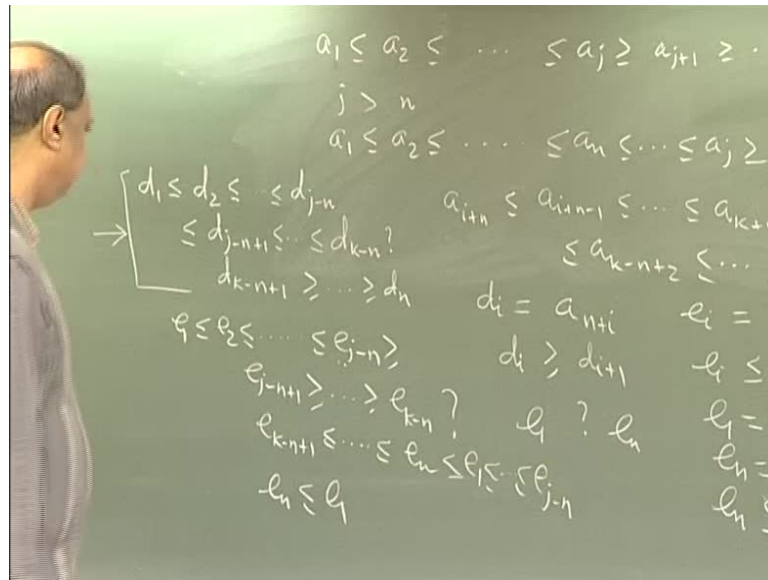 a₁ ≤ a₂ ≤ ⋯ ≤ aⱼ ≥ aⱼ₊₁ ≥ ⋅
j > n
a₁ ≤ a₂ ≤ ⋯⋅ ≤ aₙ ≤ ⋯ ≤ aⱼ ≥
d₁ ≤ d₂ ≤ ⋯ ≤ d_{j-n}
≤ d_{j-n+1} ≤ ⋯ ≤ d_{k-n} ?
d_{k-n+1} ≥ ⋯ ≥ dₙ
a_{i+n} ≤ a_{i+n-1} ≤ ⋯ ≤ a_{k+
≤ a_{k-n+2} ≤ ⋯
dᵢ = a_{n+i} eᵢ =
e₁ ≤ e₂ ≤ ⋯⋅ ≤ e_{j-n} ≥
dᵢ ≥ d_{i+1} eᵢ ≤
e_{j-n+1} ≥ ⋯ ≥ e_{k-n} ?
e₁ ? eₙ e₁ =
e_{k-n+1} ≤ ⋯⋅ ≤ eₙ ≤ e₁ ≤ ⋯ ≤ e_{j-n}
eₙ =
eₙ ≤ e₁
eₙ ≤